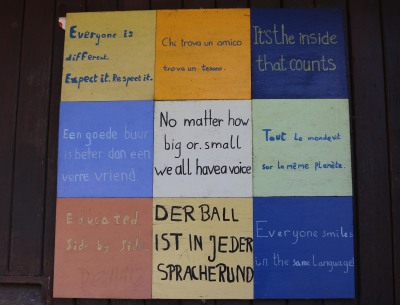 Everyone is
different.
Expect it. Respect it.
Chi trova un amico
trova un tesoro.
It's the inside
that counts
Een goede buur
is beter dan een
verre vriend.
No matter how
big or small
we all have a voice
Tout le monde vit
sur la même planète.
Educated
Side by Side
DER BALL
IST IN JEDER
SPRACHE RUND
Everyone smiles
in the same language